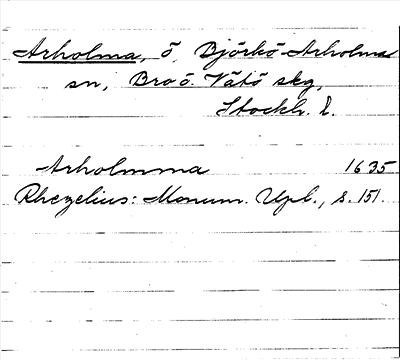 Arholma, ö, Björkö-Arholma
sn, Bro ö. Vätö skg,
Stockh. l.
Arholmma 1635
Rhezelius: Monum. Upl., s. 151.